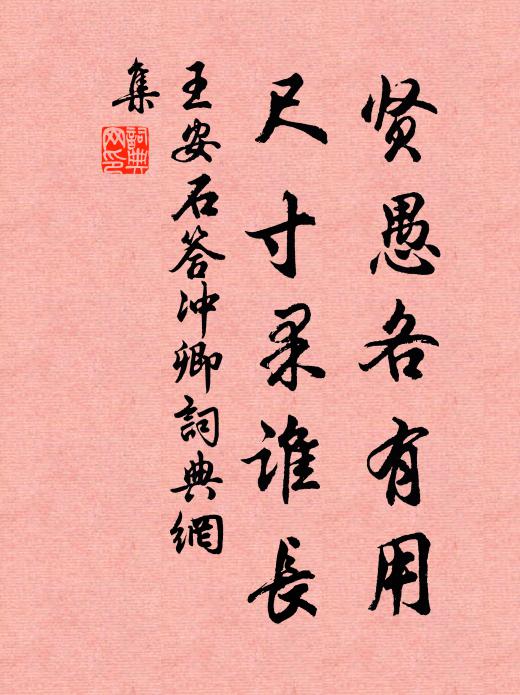 贤愚各有用
尺寸果谁長
王安石答冲卿詞典網
集
詞典
网印